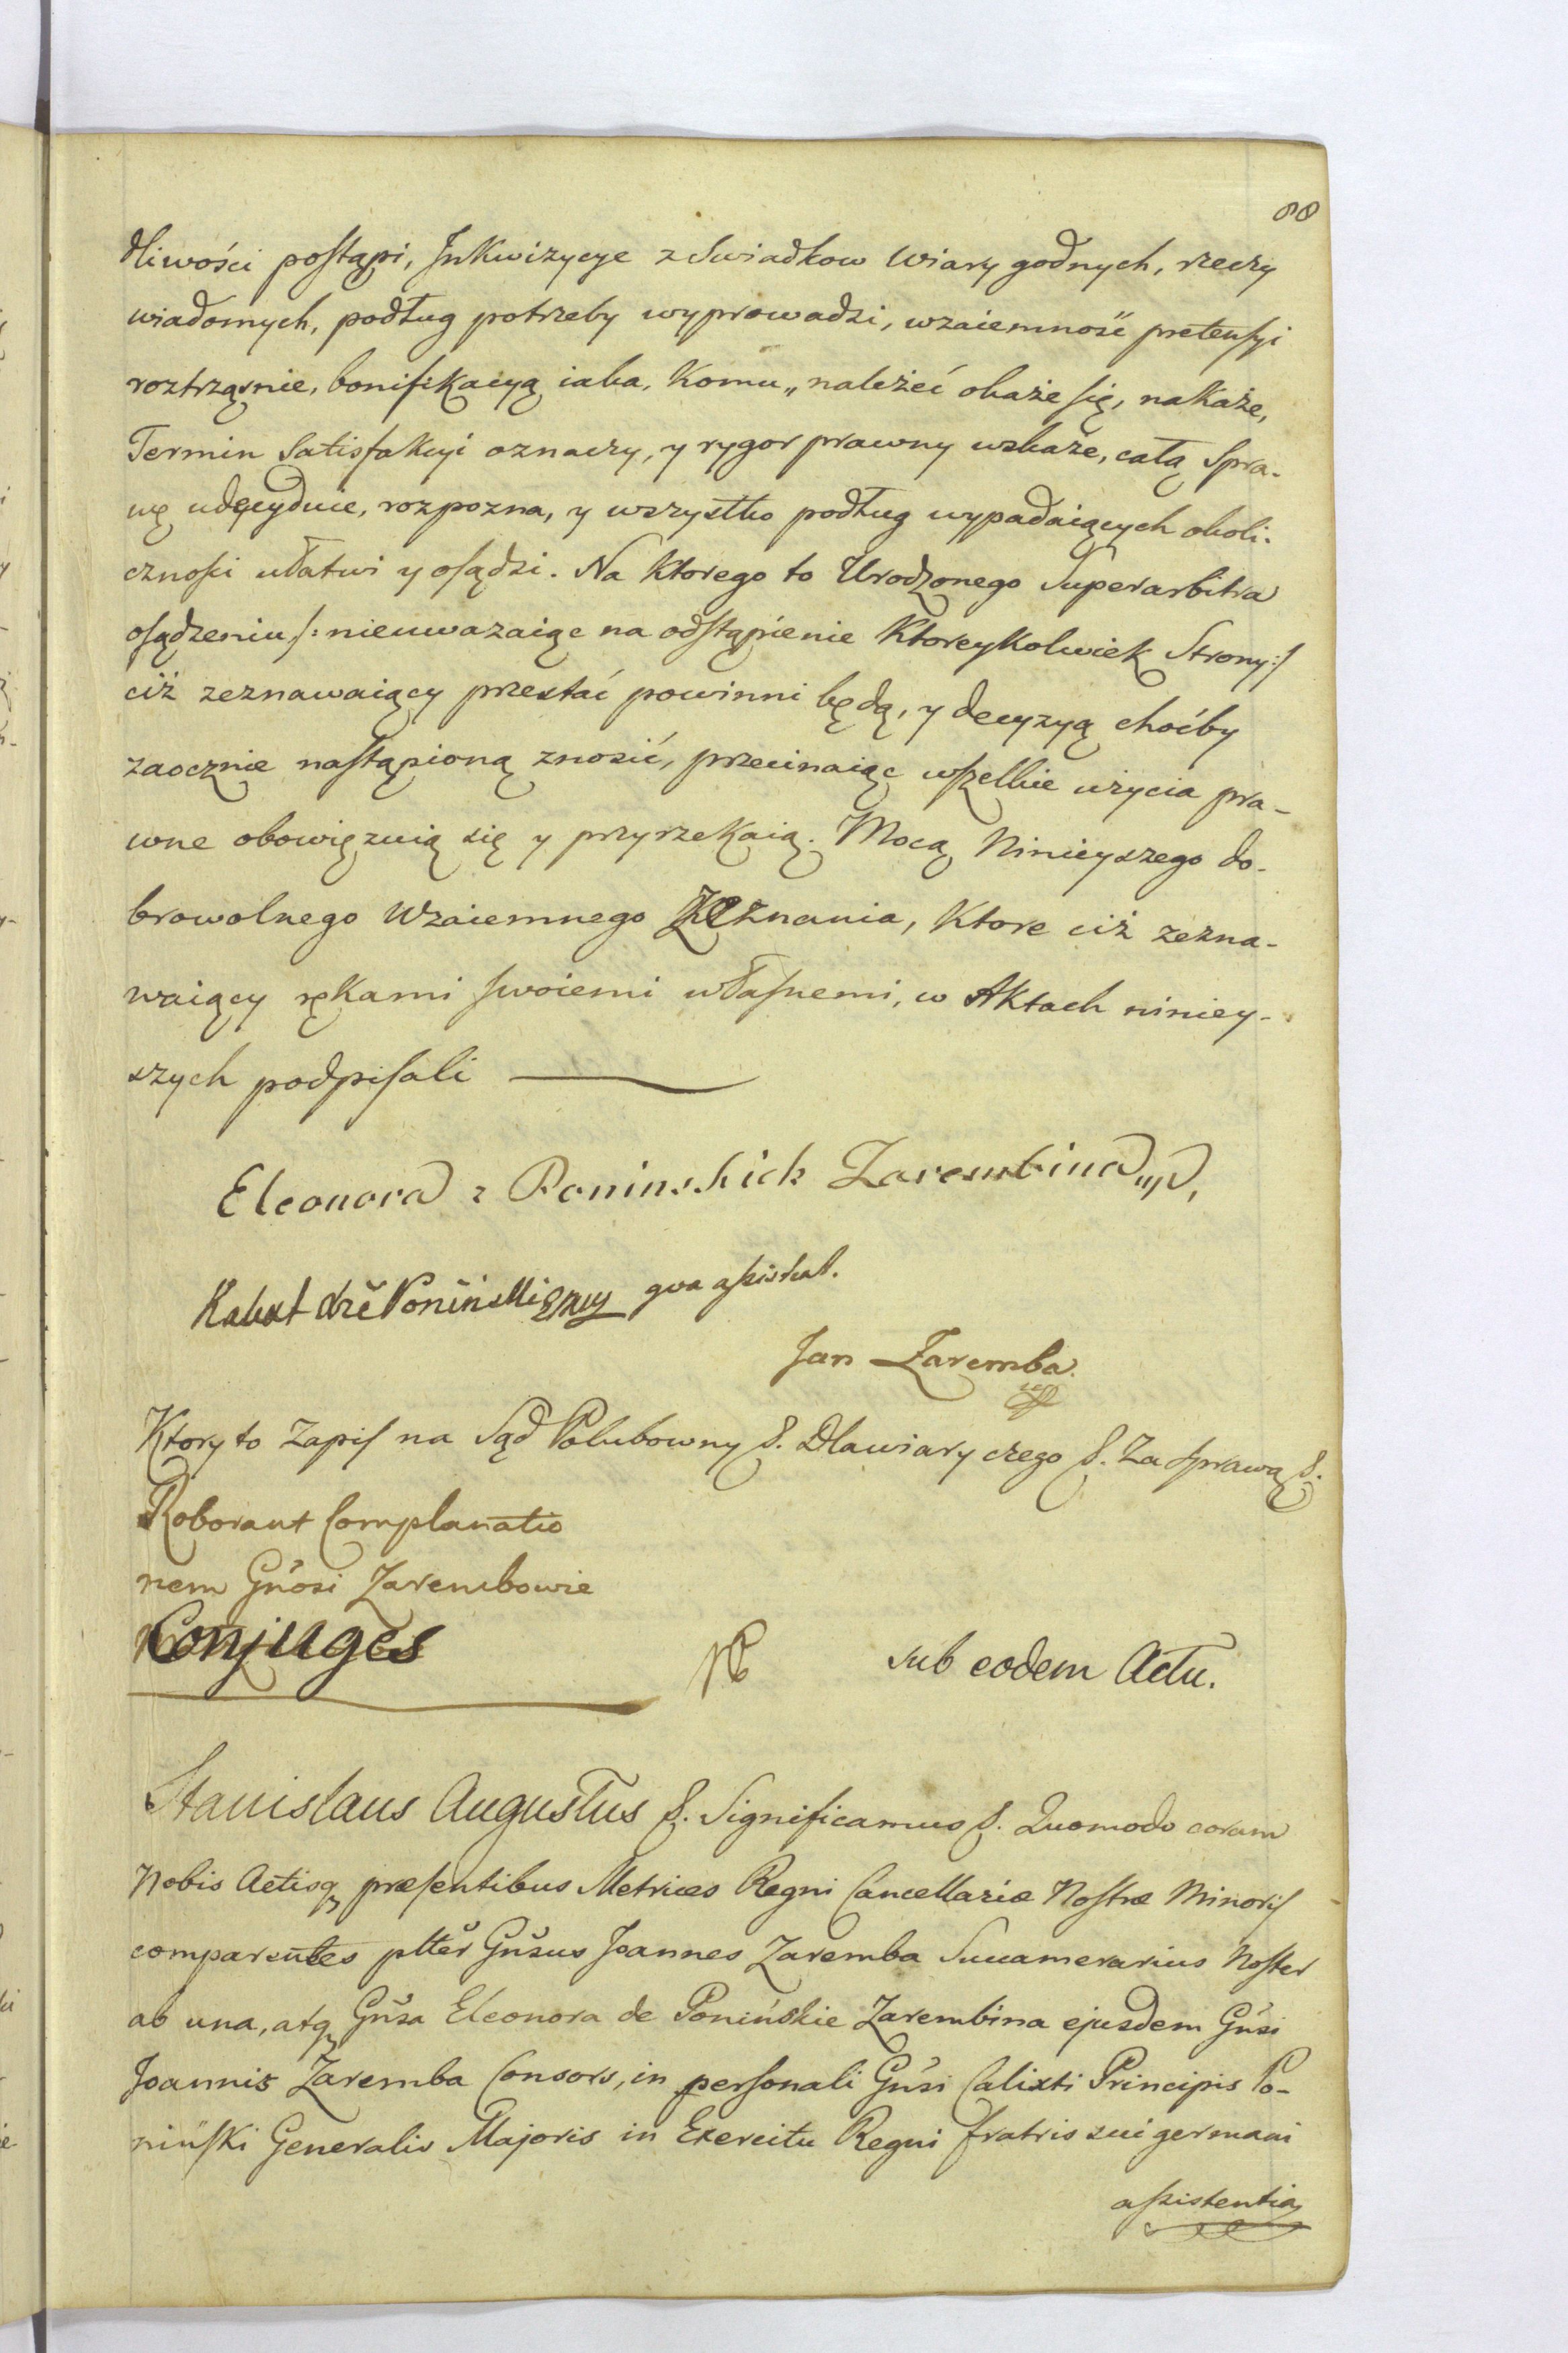 88
dliwości postąpi, Inkwizycye z Swiadkow Wiary godnych, rzeczy
wiadomych, podług potrzeby wyprowadzi, wzaiemność pretensyi
roztrząśnie, bonifikacyą iaka, Komu „ należeć okaże się, nakaże,
Termin Satisfakcyi oznaczy, y rygor prawny wskaże, całą Spra-
wę udecyduie, rozpozna, y wszystko podług wypadaiących okoli-
cznosci ułatwi y osądzi. Na Ktorego to Urodzonego Superarbitra
osądzeniu /: nieuwazaiąc na odstąpienie Ktoreykolwiek Strony :/
ciż zeznawaiący przestać powinni będą, y decyzyą choćby
zaocznie nastąpioną znosić, przecinaiąc wszelkie użycia pra-
wne obowięzuią się y przyrzekaią. Mocą Ninieyszego do-
browolnego Wzaiemnego Zeznania, Ktore ciż zezna-
waiący rękami swoiemi własnemi, w Aktach niniey-
szych podpisali
Eleonora z Poninskich Zarembina
Kalixt Xże Poniński qua assistens.
Jan Zaremba
Ktory to Zapis na Sąd Polubowny &. Dlawiary czego &. Za sprawą &.
Roborant Complanatio
nem Gnosi Zarembowie
Conjuges
sub eodem Actu.
Stanislaus Augustus &. Significamus &. Quomodo coram
Nobis Actisq præsentibus Metrices Regni Cancellariæ Nostræ Minoris
comparentes plter Gnsus Joannes Zaremba Succamerarius Noster
ab una, atq Gnsa Eleonora de Ponińskie Zarembina ejusdem Gnsi
Joannis Zaremba Consors, in personali Gnsi Calixti Principis Po-
niński Generalis Majoris in Exercitu Regni fratris sui germani
assistentia